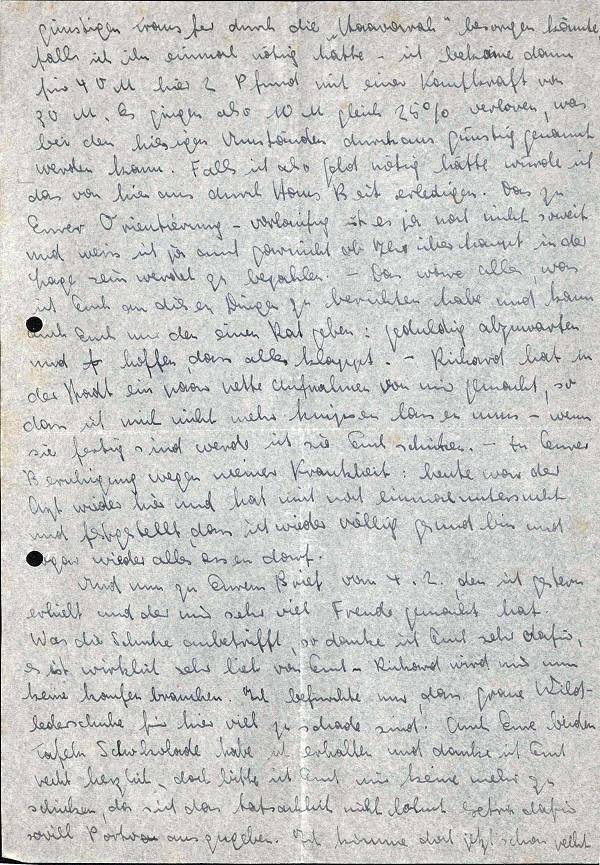 günstigen Transfer durch die „Haavarah" besorgen könnte,
falls ich ihn einmal nötig hätte - ich bekäme dann
für 40 M hier 2 Pfund mit einer Kaufkraft von
30 M. Es gingen also 10 M gleich 25% verloren, was
bei den hiesigen Umständen durchaus günstig genannt
werden kann. Falls ich also Geld nötig hätte würde ich
das von hier aus durch Hans Beit erledigen. Das zu
Eurer Orientierung - vorläufig ist es ja noch nicht soweit
und weiss ich ja auch garnicht ob Ihr überhaupt in der
Lage sein werdet zu bezahlen. - Das wäre alles, was
ich Euch an diesen Dingen zu berichten habe und kann
auch Euch nur den einen Rat geben: geduldig abzuwarten
und zu hoffen, dass alles klappt. - Richard hat in
der Stadt ein paar nette Aufnahmen von mir gemacht, so
dass ich mich nicht mehr knipsen lassen muss - wenn
sie fertig sind werde ich sie Euch schicken. - Zu Eurer
Beruhigung wegen meiner Krankheit: heute war der
Arzt wieder hier und hat mich noch einmal untersucht
und festgestellt dass ich wieder völlig gesund bin und
sogar wieder alles essen darf.
Und nun zu Eurem Brief vom 4. 2., den ich gestern
erhielt und der mir sehr viel Freude gemacht hat.
Was die Schuhe anbetrifft, so danke ich Euch sehr dafür,
es ist wirklich sehr lieb von Euch - Richard wird mir nun
keine kaufen brauchen. Ich befürchte nur, dass graue Wild-
lederschuhe für hier viel zu schade sind! Auch Eure beiden
Tafeln Schokolade habe ich erhalten und danke ich Euch
recht herzlich, doch bitte ich Euch mir keine mehr zu
schicken, da sich das tatsächlich nicht lohnt dafür
soviel Porto auszugeben. Ich komme doch jetzt schon recht